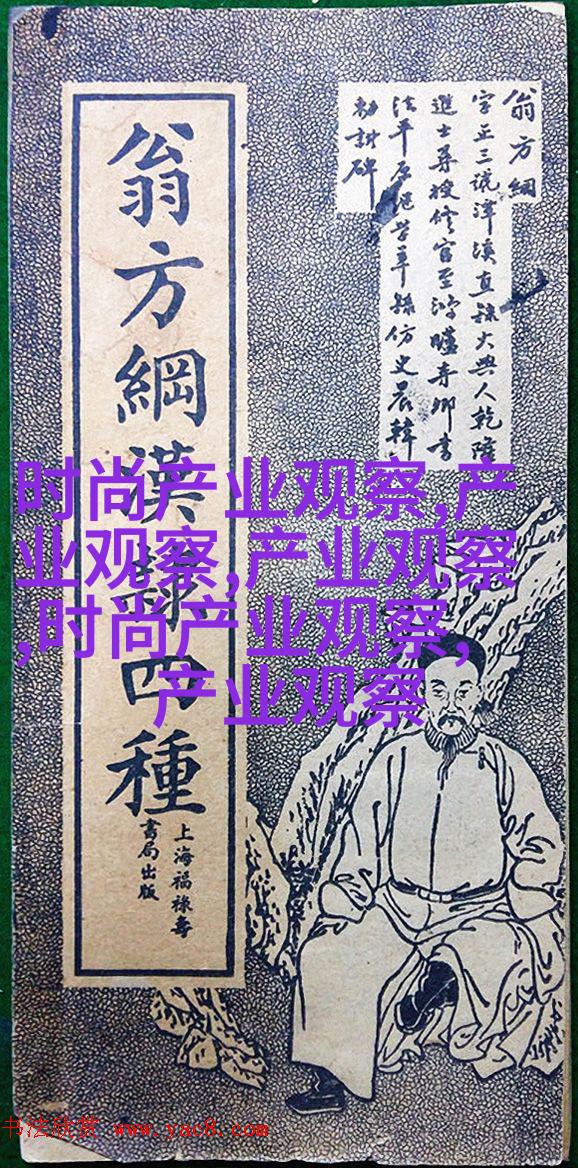 翁方綱
字正三號潭溪直隸大興人乾隆
進士尋授修官至鴻臚寺卿書
法平原繼學率隸仿史晨韓
勑諸碑
翁方綱漢隸四種
上海福祿壽
書局出版
时尚产业观察,产
业观察,产业观察
,时尚产业观察,
产业观察
书法欣赏 www.yac8.com